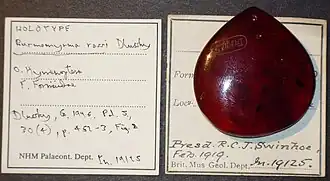 HOLOTYPE
Burmomyrma rossi Dlussky
O. Hymenoptera
F. Formicidae
Dlussky, G. 1996, PJ. 3,
30(4), p. 451-3, Fig. 2
NHM Palaeont. Dept. In. 19125
Form
Loca
Presd. R.C.J. Swinhoe,
Feb. 1919.
Brit. Mus. Geol. Dept. In. 19125.